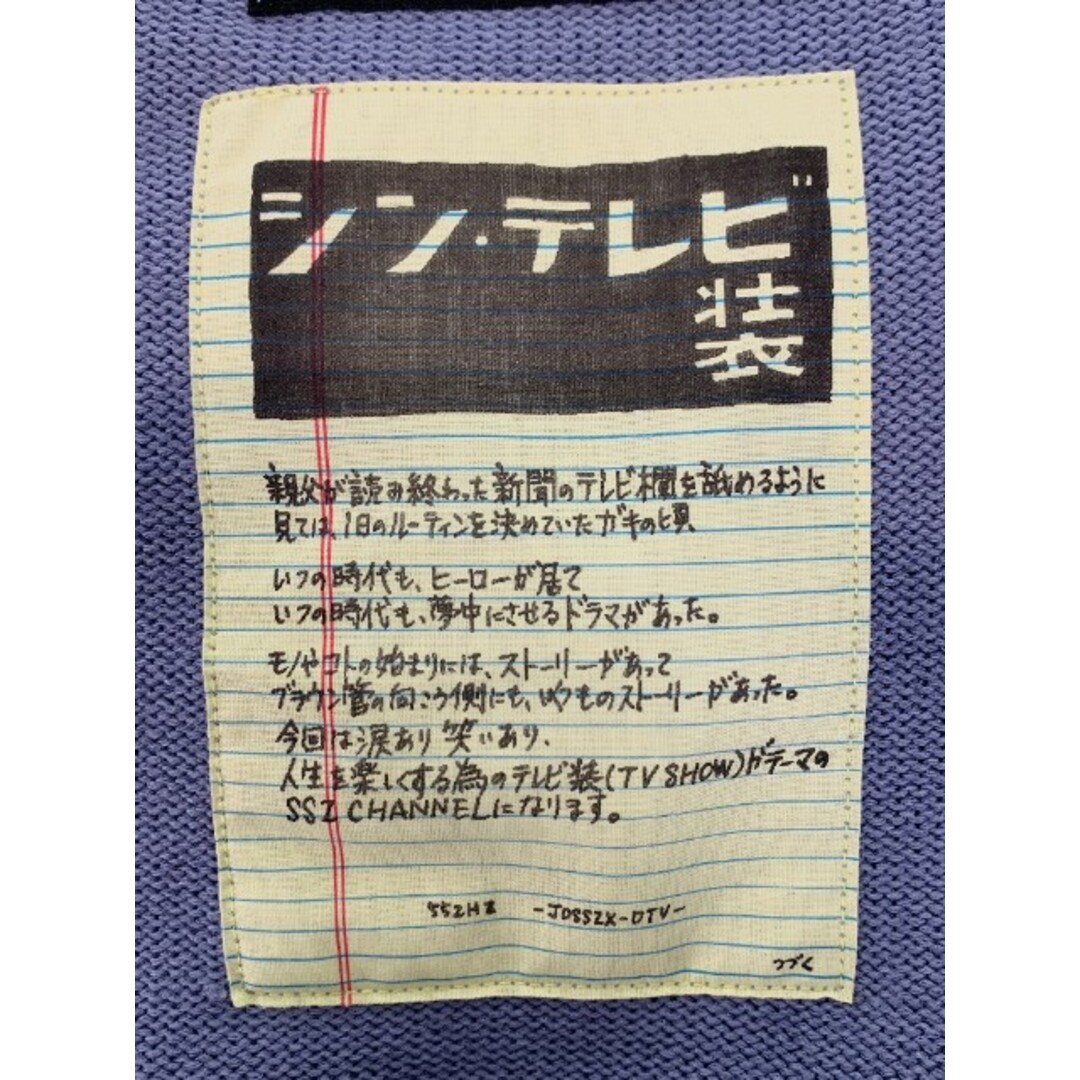 シン・テレビ
装
親父が読み終わった新聞のテレビ欄を舐めるように
見ては、1日のルーティンを決めていたガキの頃
いつの時代も、ヒーローが居て
いつの時代も、夢中にさせるドラマがあった。
モノやコトの始まりには、ストーリーがあって
ブラウン管の向こう側にも、いくつものストーリーがあった。
今回は涙あり笑いあり、
人生を楽しくする為のテレビ装(TV SHOW)がテーマの
SSZ CHANNELになります。
SSZHZ -JOSSZX-DTV-
つづく